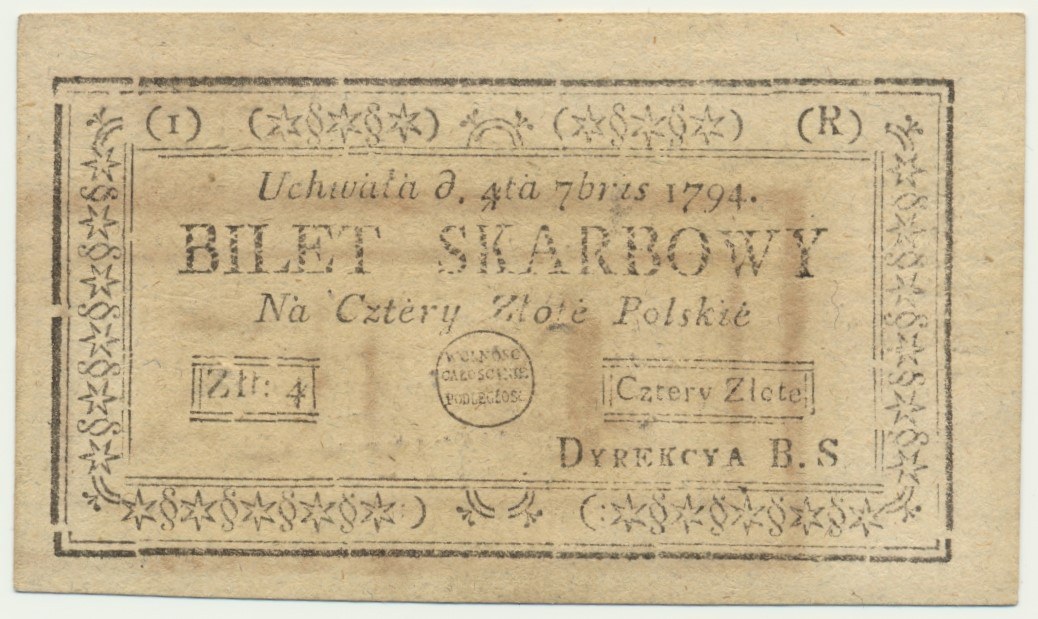 (1) (R)
Uchwała d. 4ta 7bris 1794.
BILET SKARBOWY
Na Cztéry Złóté Polskié
Złł: 4
WOLNOSC
CAŁOSC NIE
PODLEGŁOSC
Cztery Złote
DYREKCYA B. S